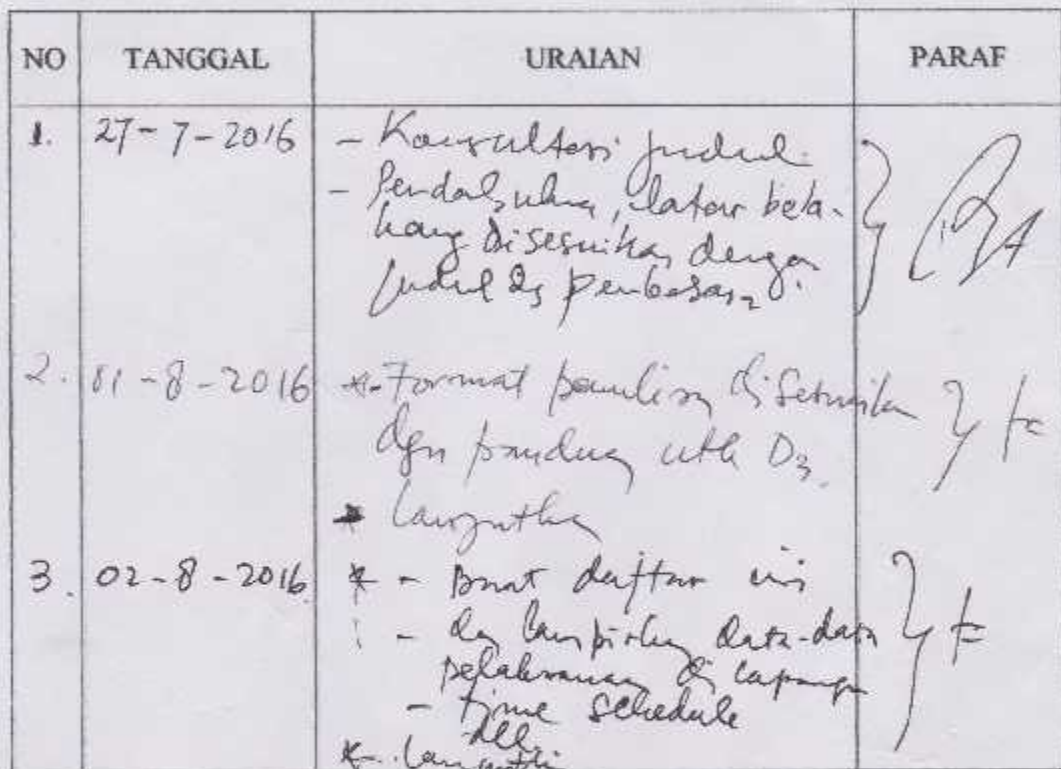 NO TANGGAL URAIAN PARAF
1. 27-7-2016 - Konsultasi judul.
- Pendahuluan, latar bela-
kang disesuikan dengan
judul dg
2. 01-8-2016 *- Format penulisan disesuaika
dgn panduan utk D3.
* Lanjutkan
3. 02-8-2016 * - Buat daftar isi
- dan lampirkan data-data
pelaksanaan di lapangan
- time schedule
dll.
* Lanjutkan